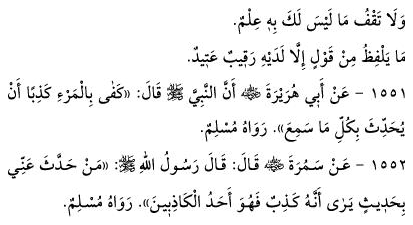 وَلَا تَقْفُ مَا لَيْسَ لَكَ بِهِ عِلْمٌ.
مَا يَلْفِظُ مِنْ قَوْلٍ إِلَّا لَدَيْهِ رَقِيبٌ عَتِيدٌ.
١٥٥١ - عَنْ أَبِي هُرَيْرَةَ ﷺ أَنَّ النَّبِيَّ ﷺ قَالَ: «كَفَى بِالْمَرْءِ كَذِبًا أَنْ
يُحَدِّثَ بِكُلِّ مَا سَمِعَ». رَوَاهُ مُسْلِمٌ.
١٥٥٢ - عَنْ سَمُرَةَ ﷺ قَالَ: قَالَ رَسُولُ اللهِ ﷺ: «مَنْ حَدَّثَ عَنِّي
بِحَدِيثٍ يَرَى أَنَّهُ كَذِبٌ فَهُوَ أَحَدُ الْكَاذِبِينَ». رَوَاهُ مُسْلِمٌ.